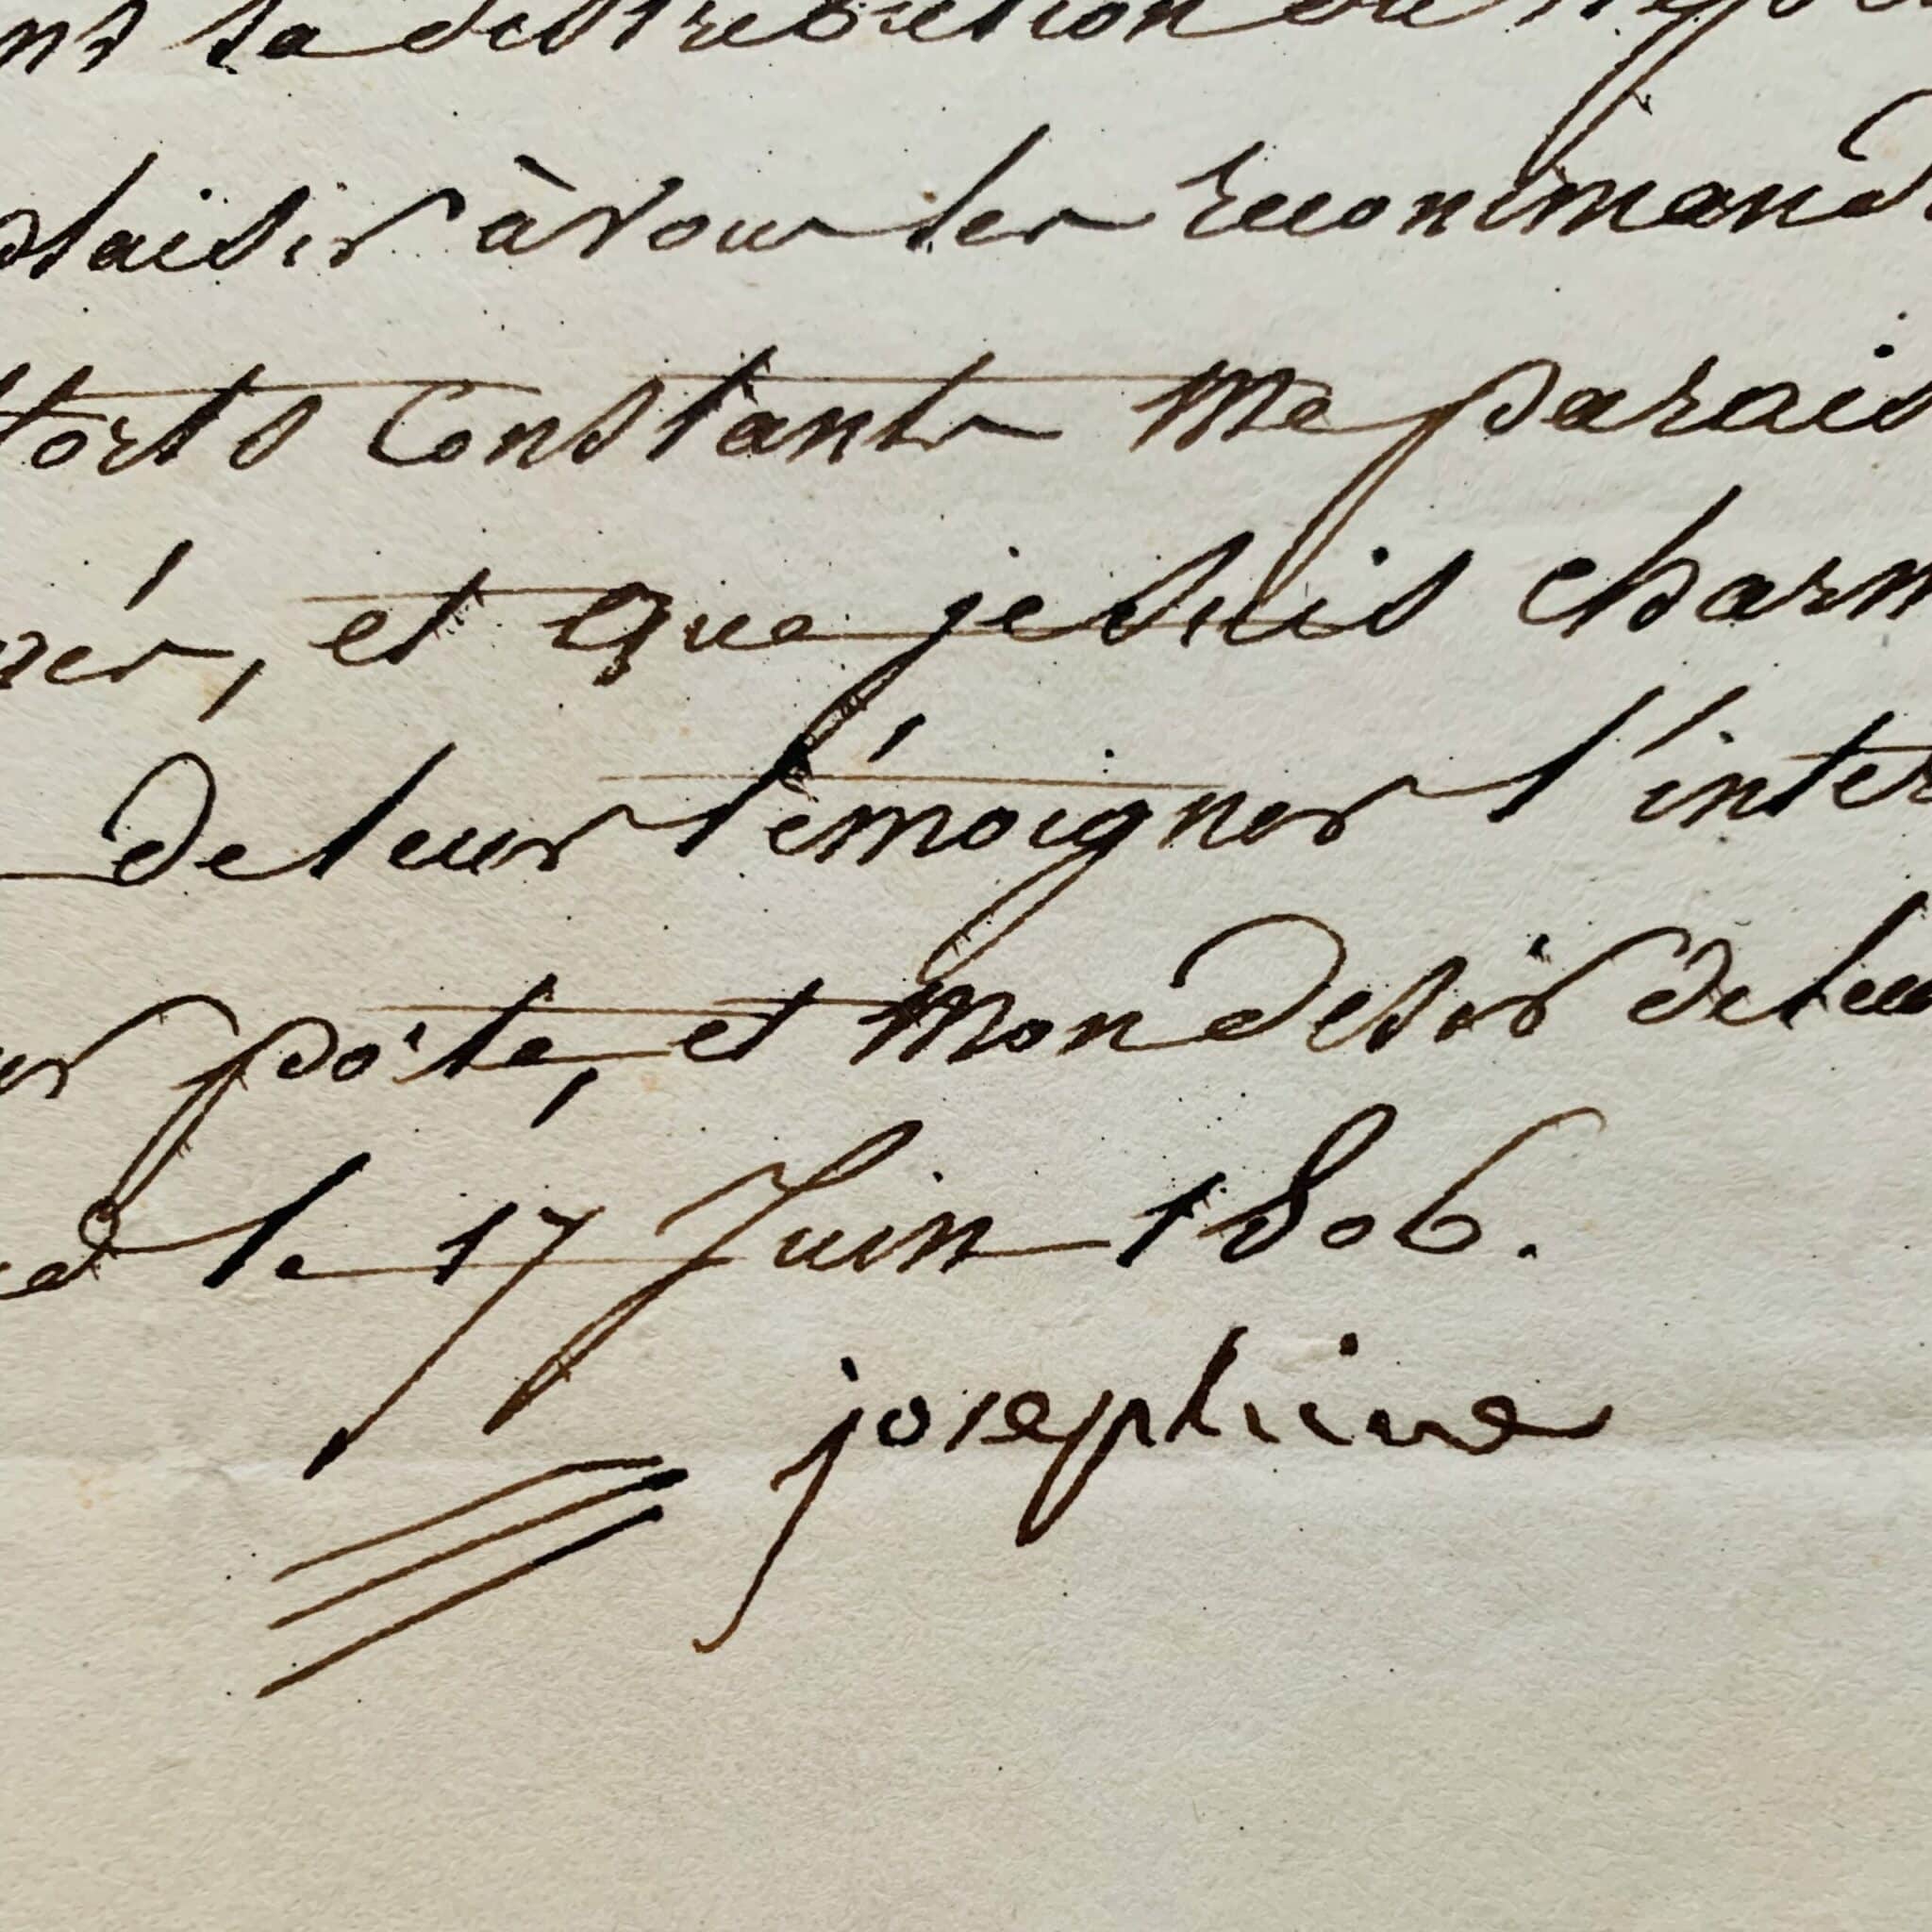 la distribution de
plaisir à vous les recommand
forts Constants me parais
rés, et que je suis charm
de leur témoigner l'inter
ur poste, et mon desir de leu
le 17 Juin 1806.
josephine